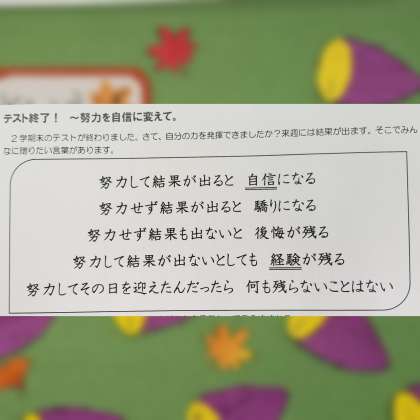 テスト終了！　～努力を自信に変えて。
２学期末のテストが終わりました。さて、自分の力を発揮できましたか？来週には結果が出ます。そこでみん
なに贈りたい言葉があります。
努力して結果が出ると　自信になる
努力せず結果が出ると　驕りになる
努力せず結果も出ないと　後悔が残る
努力して結果が出ないとしても　経験が残る
努力してその日を迎えたんだったら　何も残らないことはない